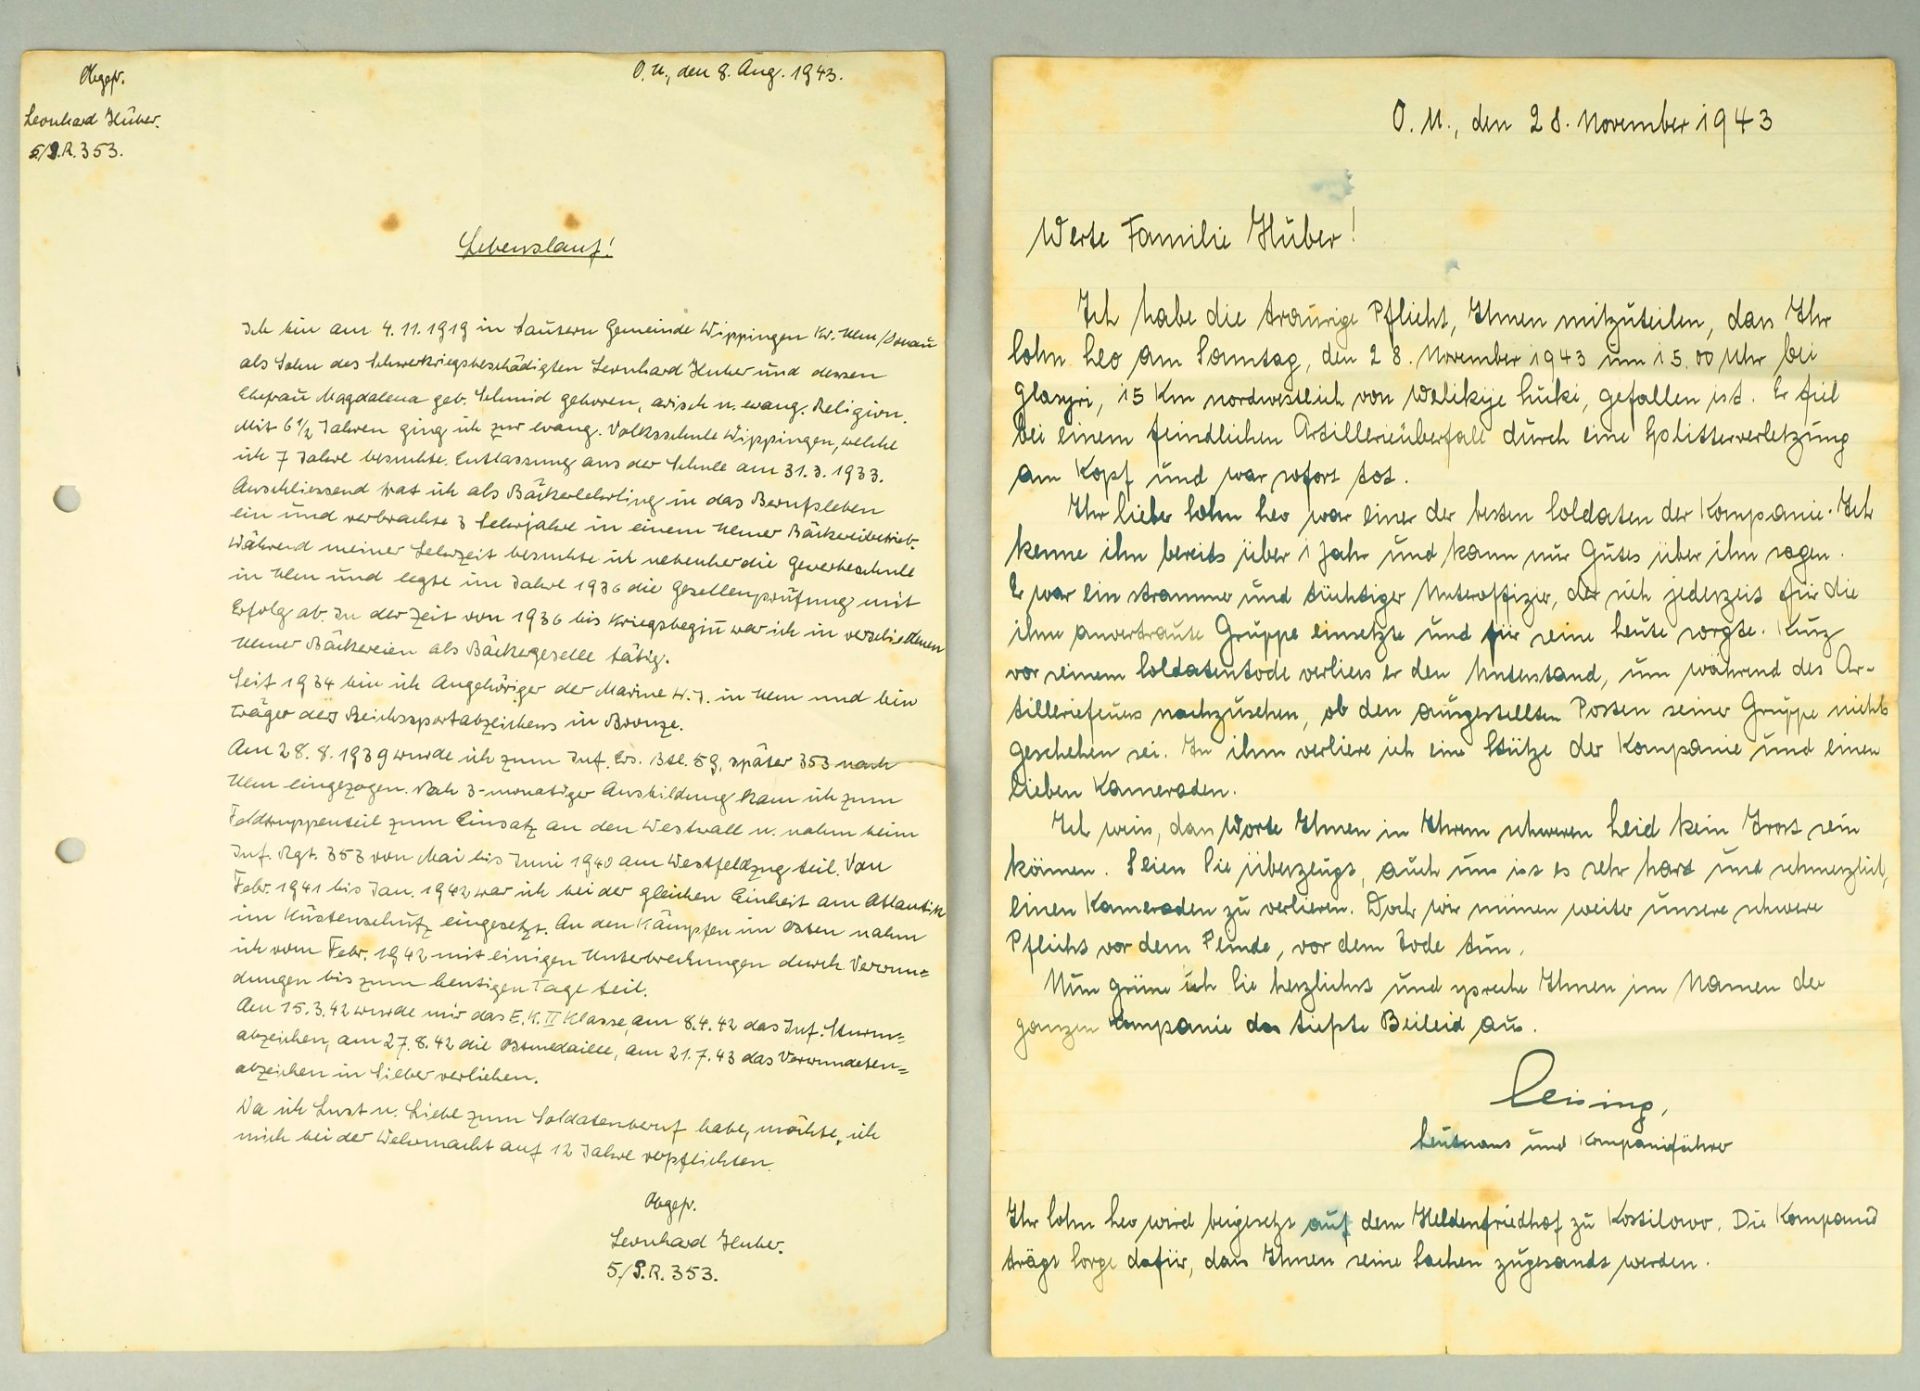 Obgefr.
Leonhard Huber.
5/J.R. 353.
O.U., den 8. Aug. 1943.
Lebenslauf!
Ich bin am 4.11.1919 in Lautern Gemeinde Wippingen Kr. Ulm/Donau
als Sohn des Schwerkriegsbeschädigten Leonhard Huber und dessen
Ehefrau Magdalena geb. Schmid geboren, arisch u. evang. Religion.
Mit 6 1/2 Jahren ging ich zur evang. Volksschule Wippingen, welche
ich 7 Jahre besuchte. Entlassung aus der Schule am 31.3.1933.
Anschliessend trat ich als Bäckerlehrling in das Berufsleben
ein und verbrachte 3 Lehrjahre in einem Ulmer Bäckereibetrieb.
Während meiner Lehrzeit besuchte ich nebenher die Gewerbeschule
in Ulm und legte im Jahre 1936 die Gesellenprüfung mit
Erfolg ab. In der Zeit von 1936 bis Kriegsbeginn war ich in verschiedenen
Ulmer Bäckereien als Bäckergeselle tätig.
Seit 1934 bin ich Angehöriger der Marine H.J. in Ulm und bin
Träger des Reichssportabzeichens in Bronze.
Am 28.8.1939 wurde ich zum Inf. Ers. Btl. 59, später 353 nach
Ulm eingezogen. Nach 3-monatiger Ausbildung kam ich zum
Feldtruppenteil zum Einsatz an den Westwall u. nahm beim
Inf. Rgt. 353 von Mai bis Juni 1940 am Westfeldzug teil. Von
Febr. 1941 bis Jan. 1942 war ich bei der gleichen Einheit am Atlantik
im Küstenschutz eingesetzt. An den Kämpfen im Osten nahm
ich vom Febr. 1942 mit einigen Unterbrechungen durch Verwun=
dungen bis zum heutigen Tage teil.
Am 15.3.42 wurde mir das E.K. II Klasse, am 8.4.42 das Inf. Sturm=
abzeichen, am 27.8.42 die Ostmedaille, am 21.7.43 das Verwundeten=
abzeichen in Silber verliehen.
Da ich Lust u. Liebe zum Soldatenberuf habe, möchte ich
mich bei der Wehrmacht auf 12 Jahre verpflichten.
Obgefr.
Leonhard Huber.
5./J.R. 353.
O.U., den 28. November 1943
Werte Familie Huber!
Ich habe die traurige Pflicht, Ihnen mitzuteilen, dass Ihr
Sohn Leo am Sonntag, den 28. November 1943 um 15.00 Uhr bei
Glasyri, 15 Km nordwestlich von Welikije Luki, gefallen ist. Er fiel
bei einem feindlichen Artillerieüberfall durch eine Splitterverletzung
am Kopf und war sofort tot.
Ihr lieber Sohn Leo war einer der besten Soldaten der Kompanie. Ich
kenne ihn bereits über 1 Jahr und kann nur Gutes über ihn sagen.
Er war ein strammer und tüchtiger Unteroffizier, der sich jederzeit für die
ihm anvertraute Gruppe einsetzte und für seine Leute sorgte. Kurz
vor seinem Soldatentode verliess er den Unterstand, um während des Ar-
tilleriefeuers nachzusehen, ob den ausgestellten Posten seiner Gruppe nichts
geschehen sei. In ihm verliere ich eine Stütze der Kompanie und einen
lieben Kameraden.
Ich weiss, dass Worte Ihnen in Ihrem schweren Leid kein Trost sein
können. Seien Sie überzeugt, auch uns ist es sehr hart und schmerzlich,
einen Kameraden zu verlieren. Doch wir müssen weiter unsere schwere
Pflicht vor dem Feinde, vor dem Tode tun.
Nun grüsse ich Sie herzlichst und spreche Ihnen im Namen der
ganzen Kompanie das tiefste Beileid aus.
Leising,
Leutnant und Kompanieführer
Ihr Sohn Leo wird beigesetzt auf dem Heldenfriedhof zu Kossilowo. Die Kompanie
trägt Sorge dafür, dass Ihnen seine Sachen zugesandt werden.